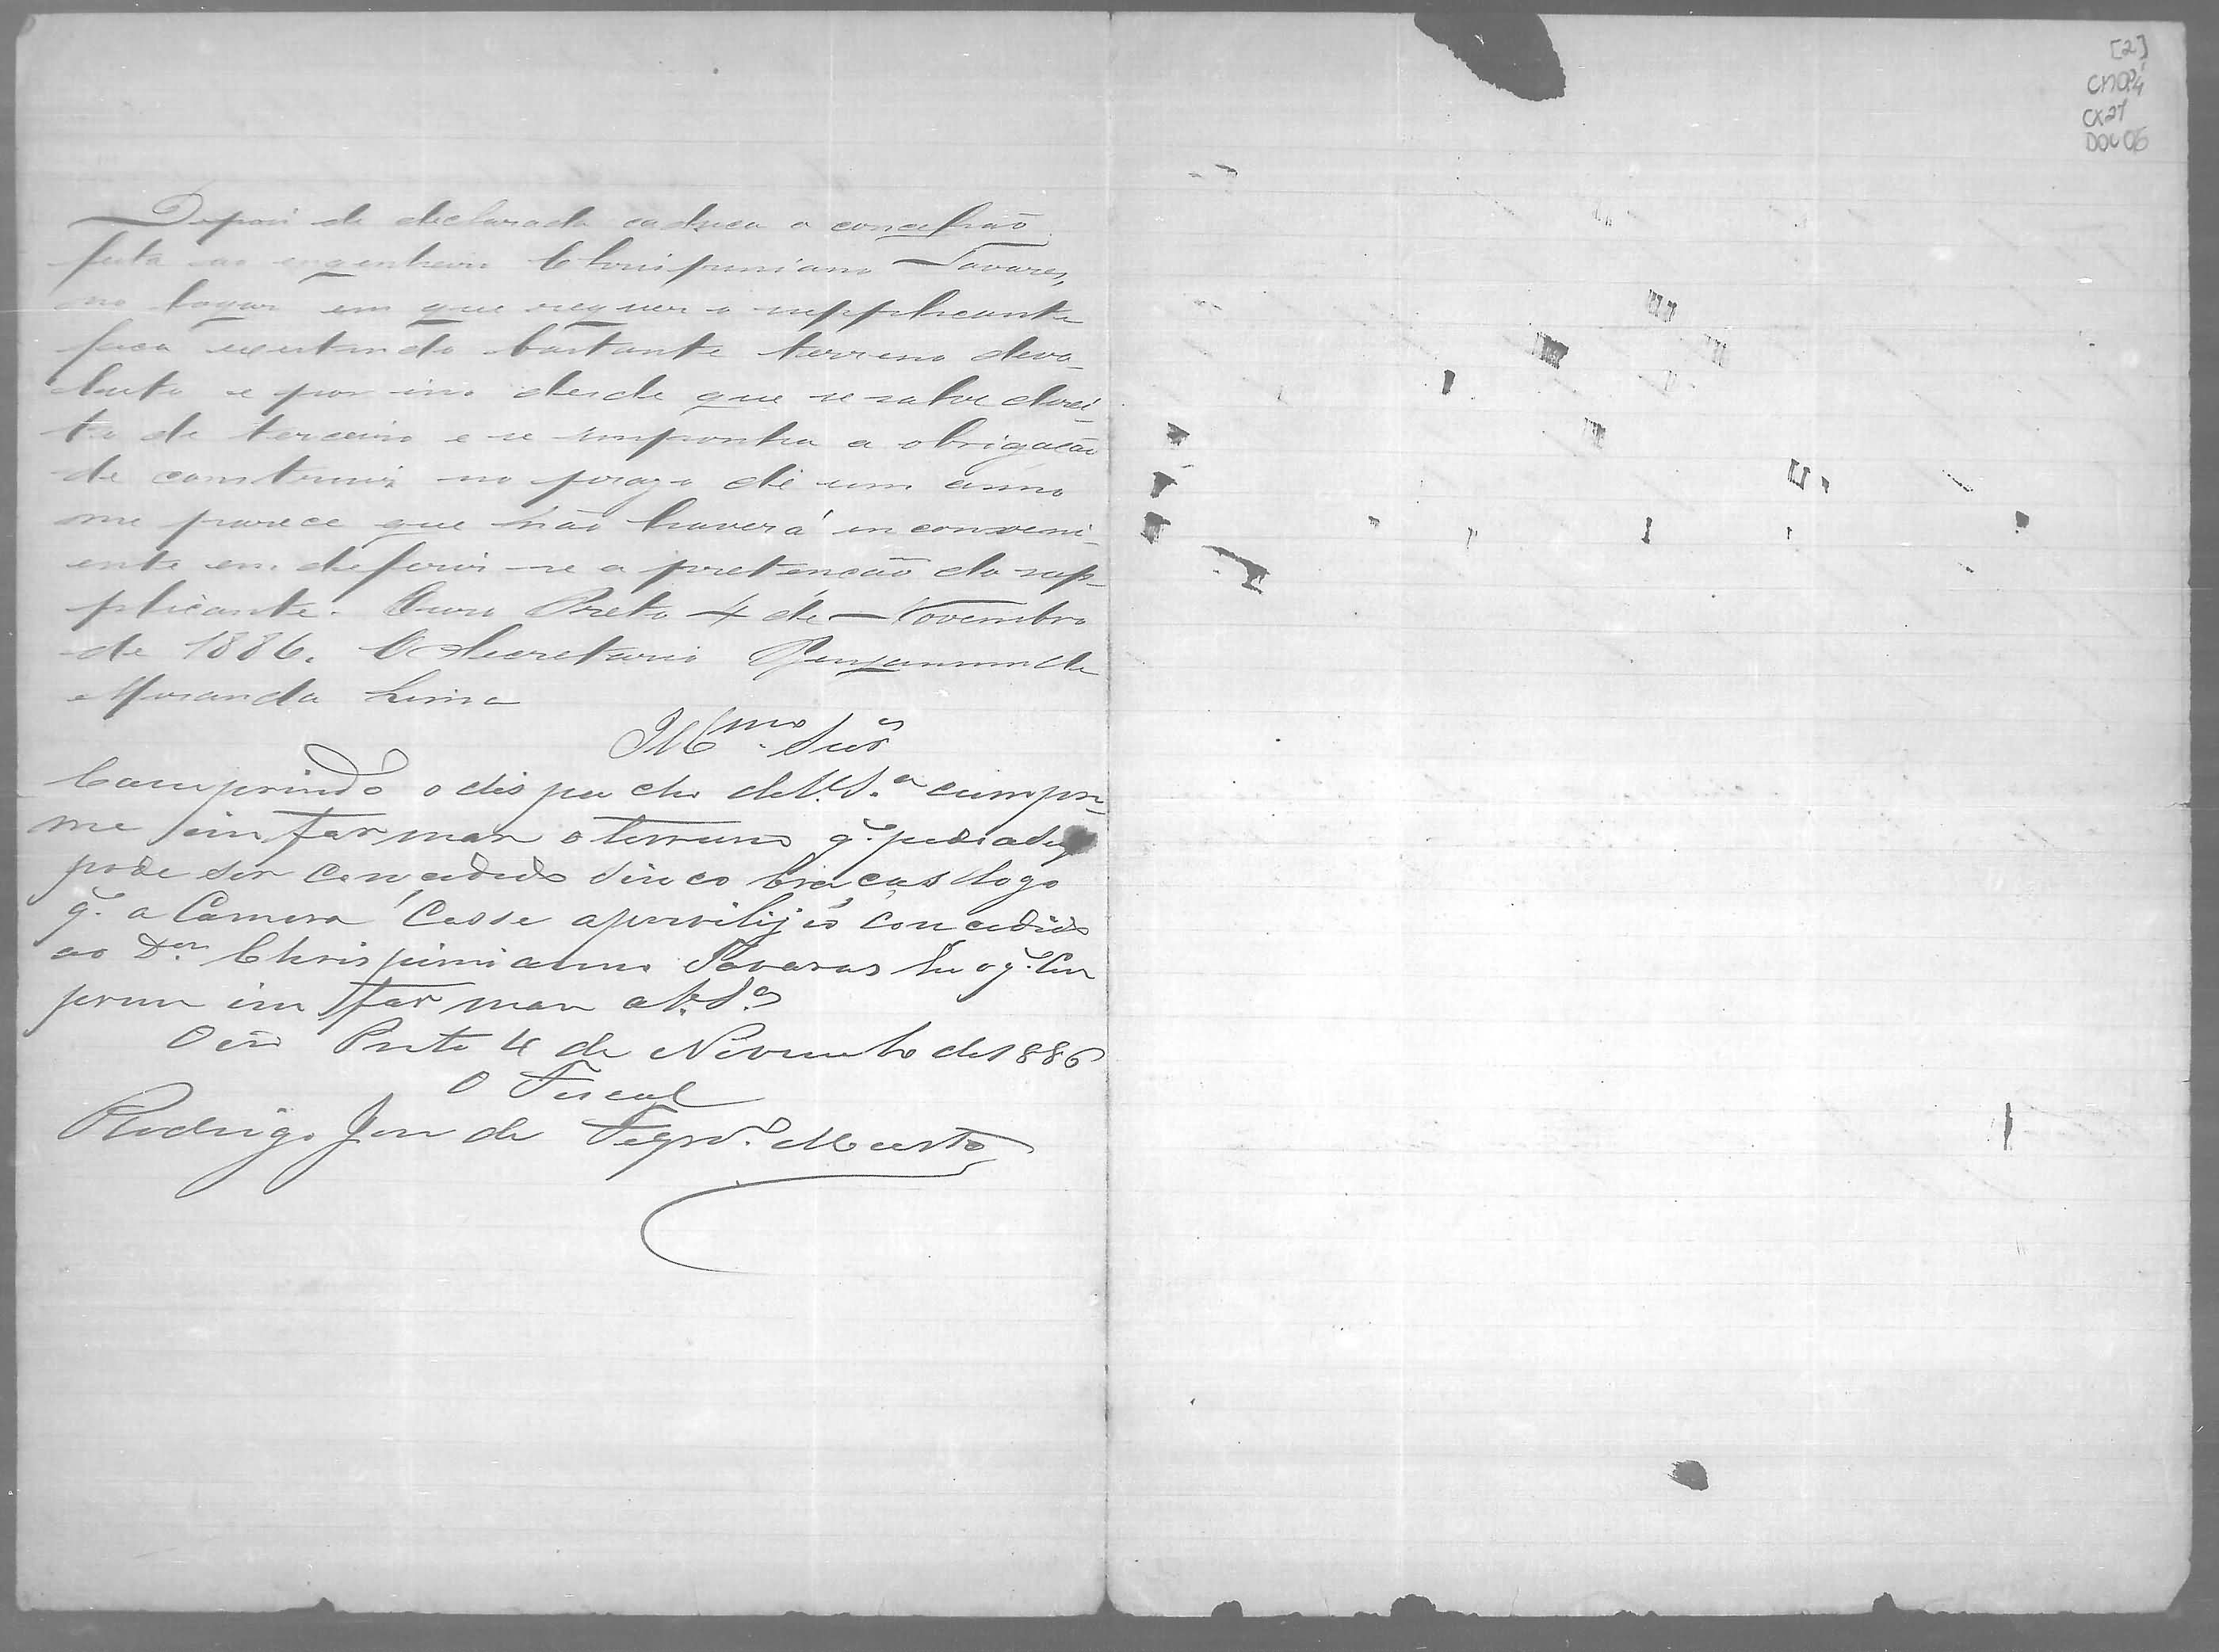 Depois de declarada caduca a concessão
feita ao engenheiro Chrispiniano Tavares,
no logar em que requer o supplicante
fica existindo bastante terreno devo-
luto e por isso desde que se salve direi
to de terceiro e se imponha a obrigação
de construir no praso de um anno
me parece que não haverá inconveni-
ente em deferir-se a pretenção do sup-
plicante. Ouro Preto 4 de Novembro
de 1886. O Secretario Benjamim de
Miranda Lima
Ill.mo Snr.es
Comprindo o dispacho de V. S.a cumpre
me imformar o terreno q.
pode ser Concedido sinco bracas logo
q. a Camera Casse a previlijio concedido
ao D.or Chrispinianno Tavaras he o q.
imformar a V. S.as
Oro Preto 4 de Novembro de 1886
O Fiscal
Rodrigo José de Figrd.o Murta
[2]
CMOP
CX 27
DOC 05